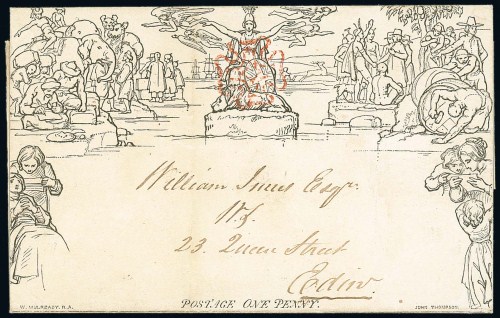 William Innes Esqr.
W.S.
23. Queen Street
Edinr.
POSTAGE ONE PENNY.
W. MULREADY. R.A.
JOHN THOMPSON.